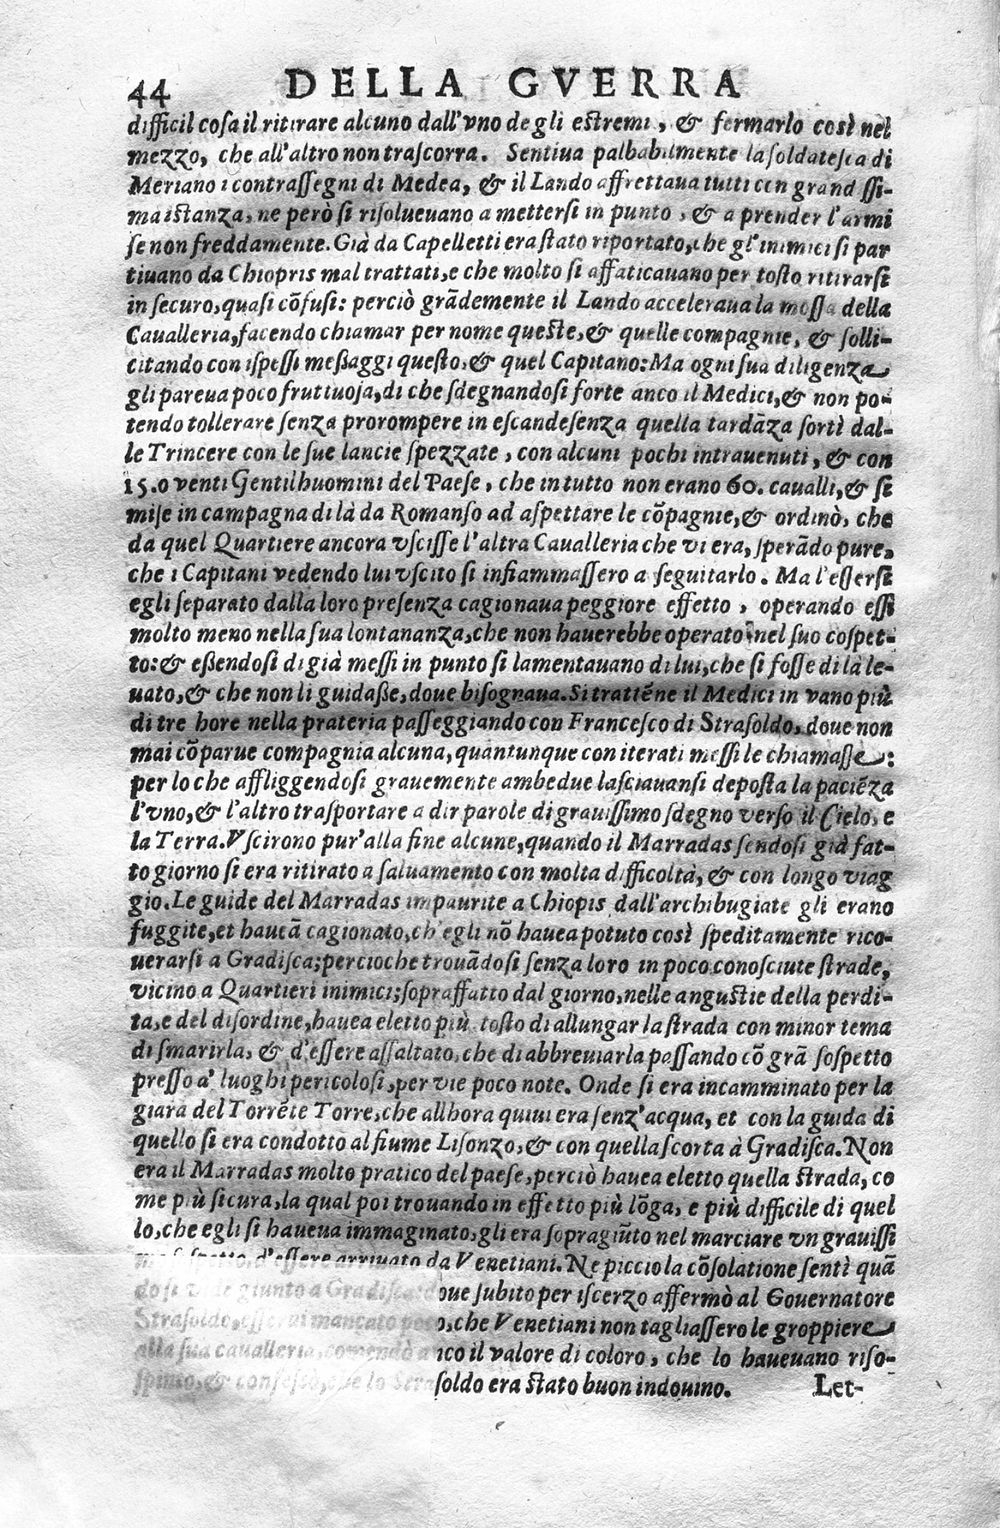 44 DELLA GVERRA
difficil cosa il ritirare alcuno dall'vno degli estremi, & fermarlo così nel
mezzo, che all'altro non trascorra. Sentiua palbabilmente la soldatesca di
Meriano i contrassegni di Medea, & il Lando affrettaua tutti con grand ssi-
ma istanza, ne però si risolueuano a mettersi in punto, & a prender l'armi
se non freddamente. Già da Capelletti era stato riportato, che gl'inimici si par
tiuano da Chiopris mal trattati, e che molto si affaticauano per tosto ritirarsi
in securo, quasi cõfusi: perciò grãdemente il Lando acceleraua la mossa della
Caualleria, facendo chiamar per nome queste, & quelle compagnie, & solli-
citando con ispessi messaggi questo, & quel Capitano: Ma ogni sua diligenza
gli pareua poco fruttuosa, di che sdegnandosi forte anco il Medici, & non po-
tendo tollerare senza prorompere in escandesenza quella tardãza sortì dal-
le Trincere con le sue lancie spezzate, con alcuni pochi intrauenuti, & con
15. o venti Gentilhuomini del Paese, che in tutto non erano 60. caualli, & si
mise in campagna di là da Romanso ad aspettare le cõpagnie, & ordinò, che
da quel Quartiere ancora vscisse l'altra Caualleria che vi era, sperãdo pure,
che i Capitani vedendo lui vscito si infiammassero a seguitarlo. Ma l'essersi
egli separato dalla loro presenza cagionaua peggiore effetto, operando essi
molto meno nella sua lontananza, che non hauerebbe operato nel suo cospet-
to: & essendosi di già messi in punto si lamentauano di lui, che si fosse di là le-
uato, & che non li guidasse, doue bisognaua. Si trattẽne il Medici in vano più
di tre hore nella prateria passeggiando con Francesco di Strasoldo, doue non
mai cõparue compagnia alcuna, quantunque con iterati messi le chiamasse:
per lo che affliggendosi grauemente ambedue lasciauansi deposta la paciẽza
l'vno, & l'altro trasportare a dir parole di grauissimo sdegno verso il Cielo, e
la Terra. Vscirono pur'alla fine alcune, quando il Marradas sendosi già fat-
to giorno si era ritirato a saluamento con molta difficoltà, & con longo viag
gio. Le guide del Marradas impaurite a Chiopis dall'archibugiate gli erano
fuggite, et haueã cagionato, ch'egli nõ hauea potuto così speditamente rico-
uerarsi a Gradisca; percioche trouãdosi senza loro in poco conosciute strade,
vicino a Quartieri inimici; sopraffatto dal giorno, nelle angustie della perdi-
ta, e del disordine, hauea eletto più tosto di allungar la strada con minor tema
di smarirla, & d'essere assaltato, che di abbreuiarla passando cõ grã sospetto
presso a' luoghi pericolosi, per vie poco note. Onde si era incamminato per la
giara del Torrẽte Torre, che allhora quiui era senz'acqua, et con la guida di
quello si era condotto al fiume Lisonzo, & con quella scorta à Gradisca. Non
era il Marradas molto pratico del paese, perciò hauea eletto quella strada, co
me più sicura, la qual poi trouando in effetto più lõga, e più difficile di quel
lo, che egli si haueua immaginato, gli era sopragiũto nel marciare vn grauissi
mo sospetto, d'essere arriuato da Venetiani. Ne picciola cõsolatione sentì quã
do si vide giunto a Gradisca: doue subito per ischerzo affermò al Gouernatore
Strasoldo, esserui mancato poco, che Venetiani non tagliassero le groppiere
alla sua caualleria, comendò anco il valore di coloro, che lo haueuano riso-
spinto, & confessò, che lo Strasoldo era stato buon indouino. Let-